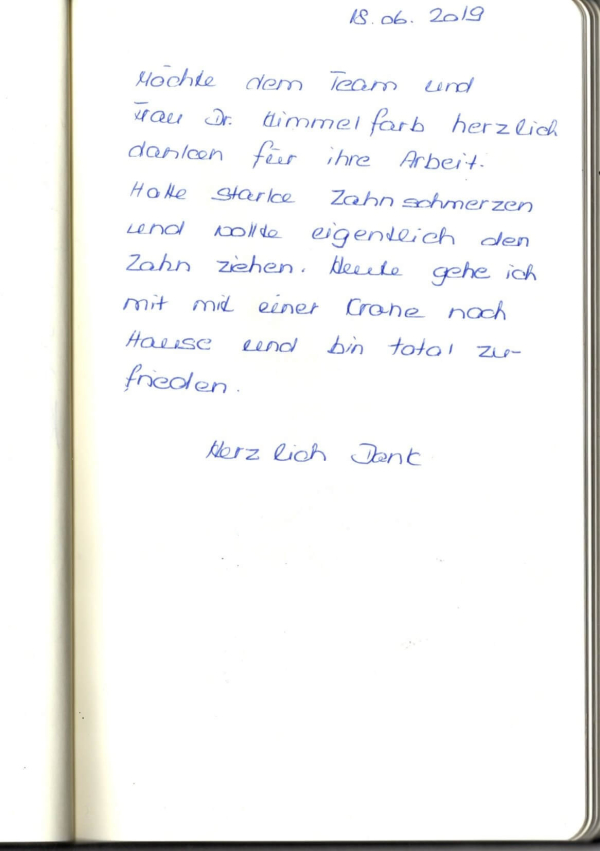 18.06.2019
Möchte dem Team und
Frau Dr. Himmelfarb herzlich
danken für ihre Arbeit.
Hatte starke Zahnschmerzen
und wollte eigentleich den
Zahn ziehen. Heute gehe ich
mit mit einer Crone nach
Hause und bin total zu-
frieden.
Herzlich Dank